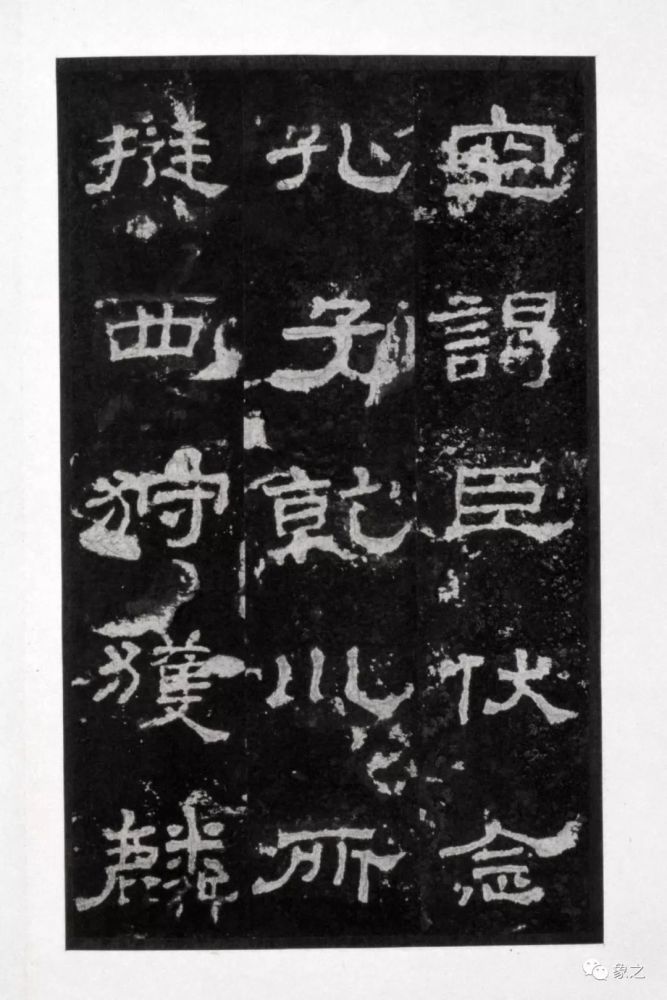 空謁臣伏念
孔子乾川所
挺西狩獲麟
象之